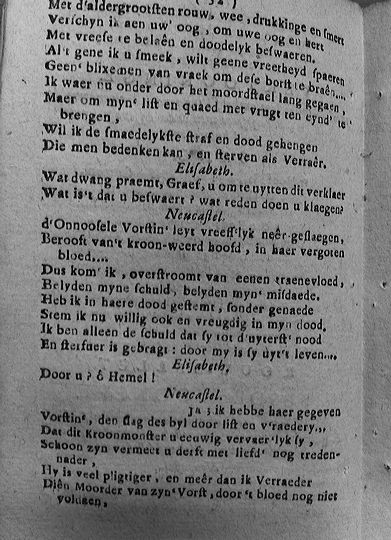 ( 52 )
Met d'aldergrootsten rouw, wee, drukkinge en smert
Verschyn ik aen uw' oog, om uwe oog en hert
Met vreese te belaên en doodelyk beswaeren.
Al't gene ik u smeek, wilt geene vreetheyd spaeren
Geen' blixemen van vraek om dese borst te braên....
Ik waer nu onder door het moordstael lang gegaen,
Maer om myn' list en quaed met vrugt ten eynd' te
brengen,
Wil ik de smaedelykste straf en dood gehengen
Die men bedenken kan, en sterven als Verraêr.
Elisabeth.
Wat dwang praemt, Graef, u om te uytten dit verklaer
Wat is't dat u beswaert? wat reden doen u klaegen?
Neucastel.
d'Onnoosele Vorstin' leyt vreess'lyk neêr-geslaegen,
Berooft van't kroon-weerd hoofd, in haer vergoten
bloed....
Dus kom' ik, overstroomt van eenen traenevloed,
Belyden myne schuld, belyden myn' misdaede.
Heb ik in haere dood gestemt, sonder genaede
Stem ik nu willig ook en vreugdig in myn dood.
Ik ben alleen de schuld dat sy tot d'uyterst' nood
En sterfuer is gebragt: door my is sy uyt't leven....
Elisabeth.
Door u? ô Hemel!
Neucastel.
Ja; ik hebbe haer gegeven
Vorstin', den slag des byl door list en v'raedery...
Dat dit Kroonmonster u eeuwig vervaer'lyk sy,
Schoon zyn vermeet u derft met liefd' nog treden-
nader,
Hy is veel pligtiger, en meêr dan ik Verraeder
Diên Moorder van zyn' Vorst, door 't bloed nog niet
voldaen,